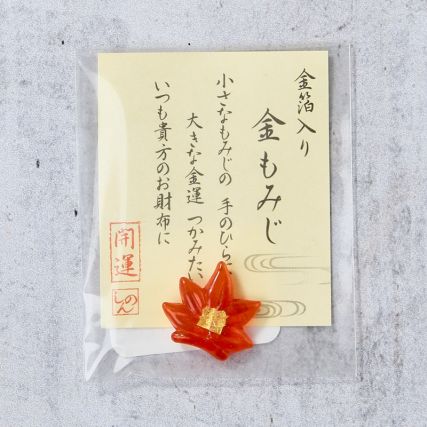 金箔入り
金もみじ
小さなもみじの 手のひらに、
大きな金運 つかみたい
いつも貴方のお財布に
開運
しのん